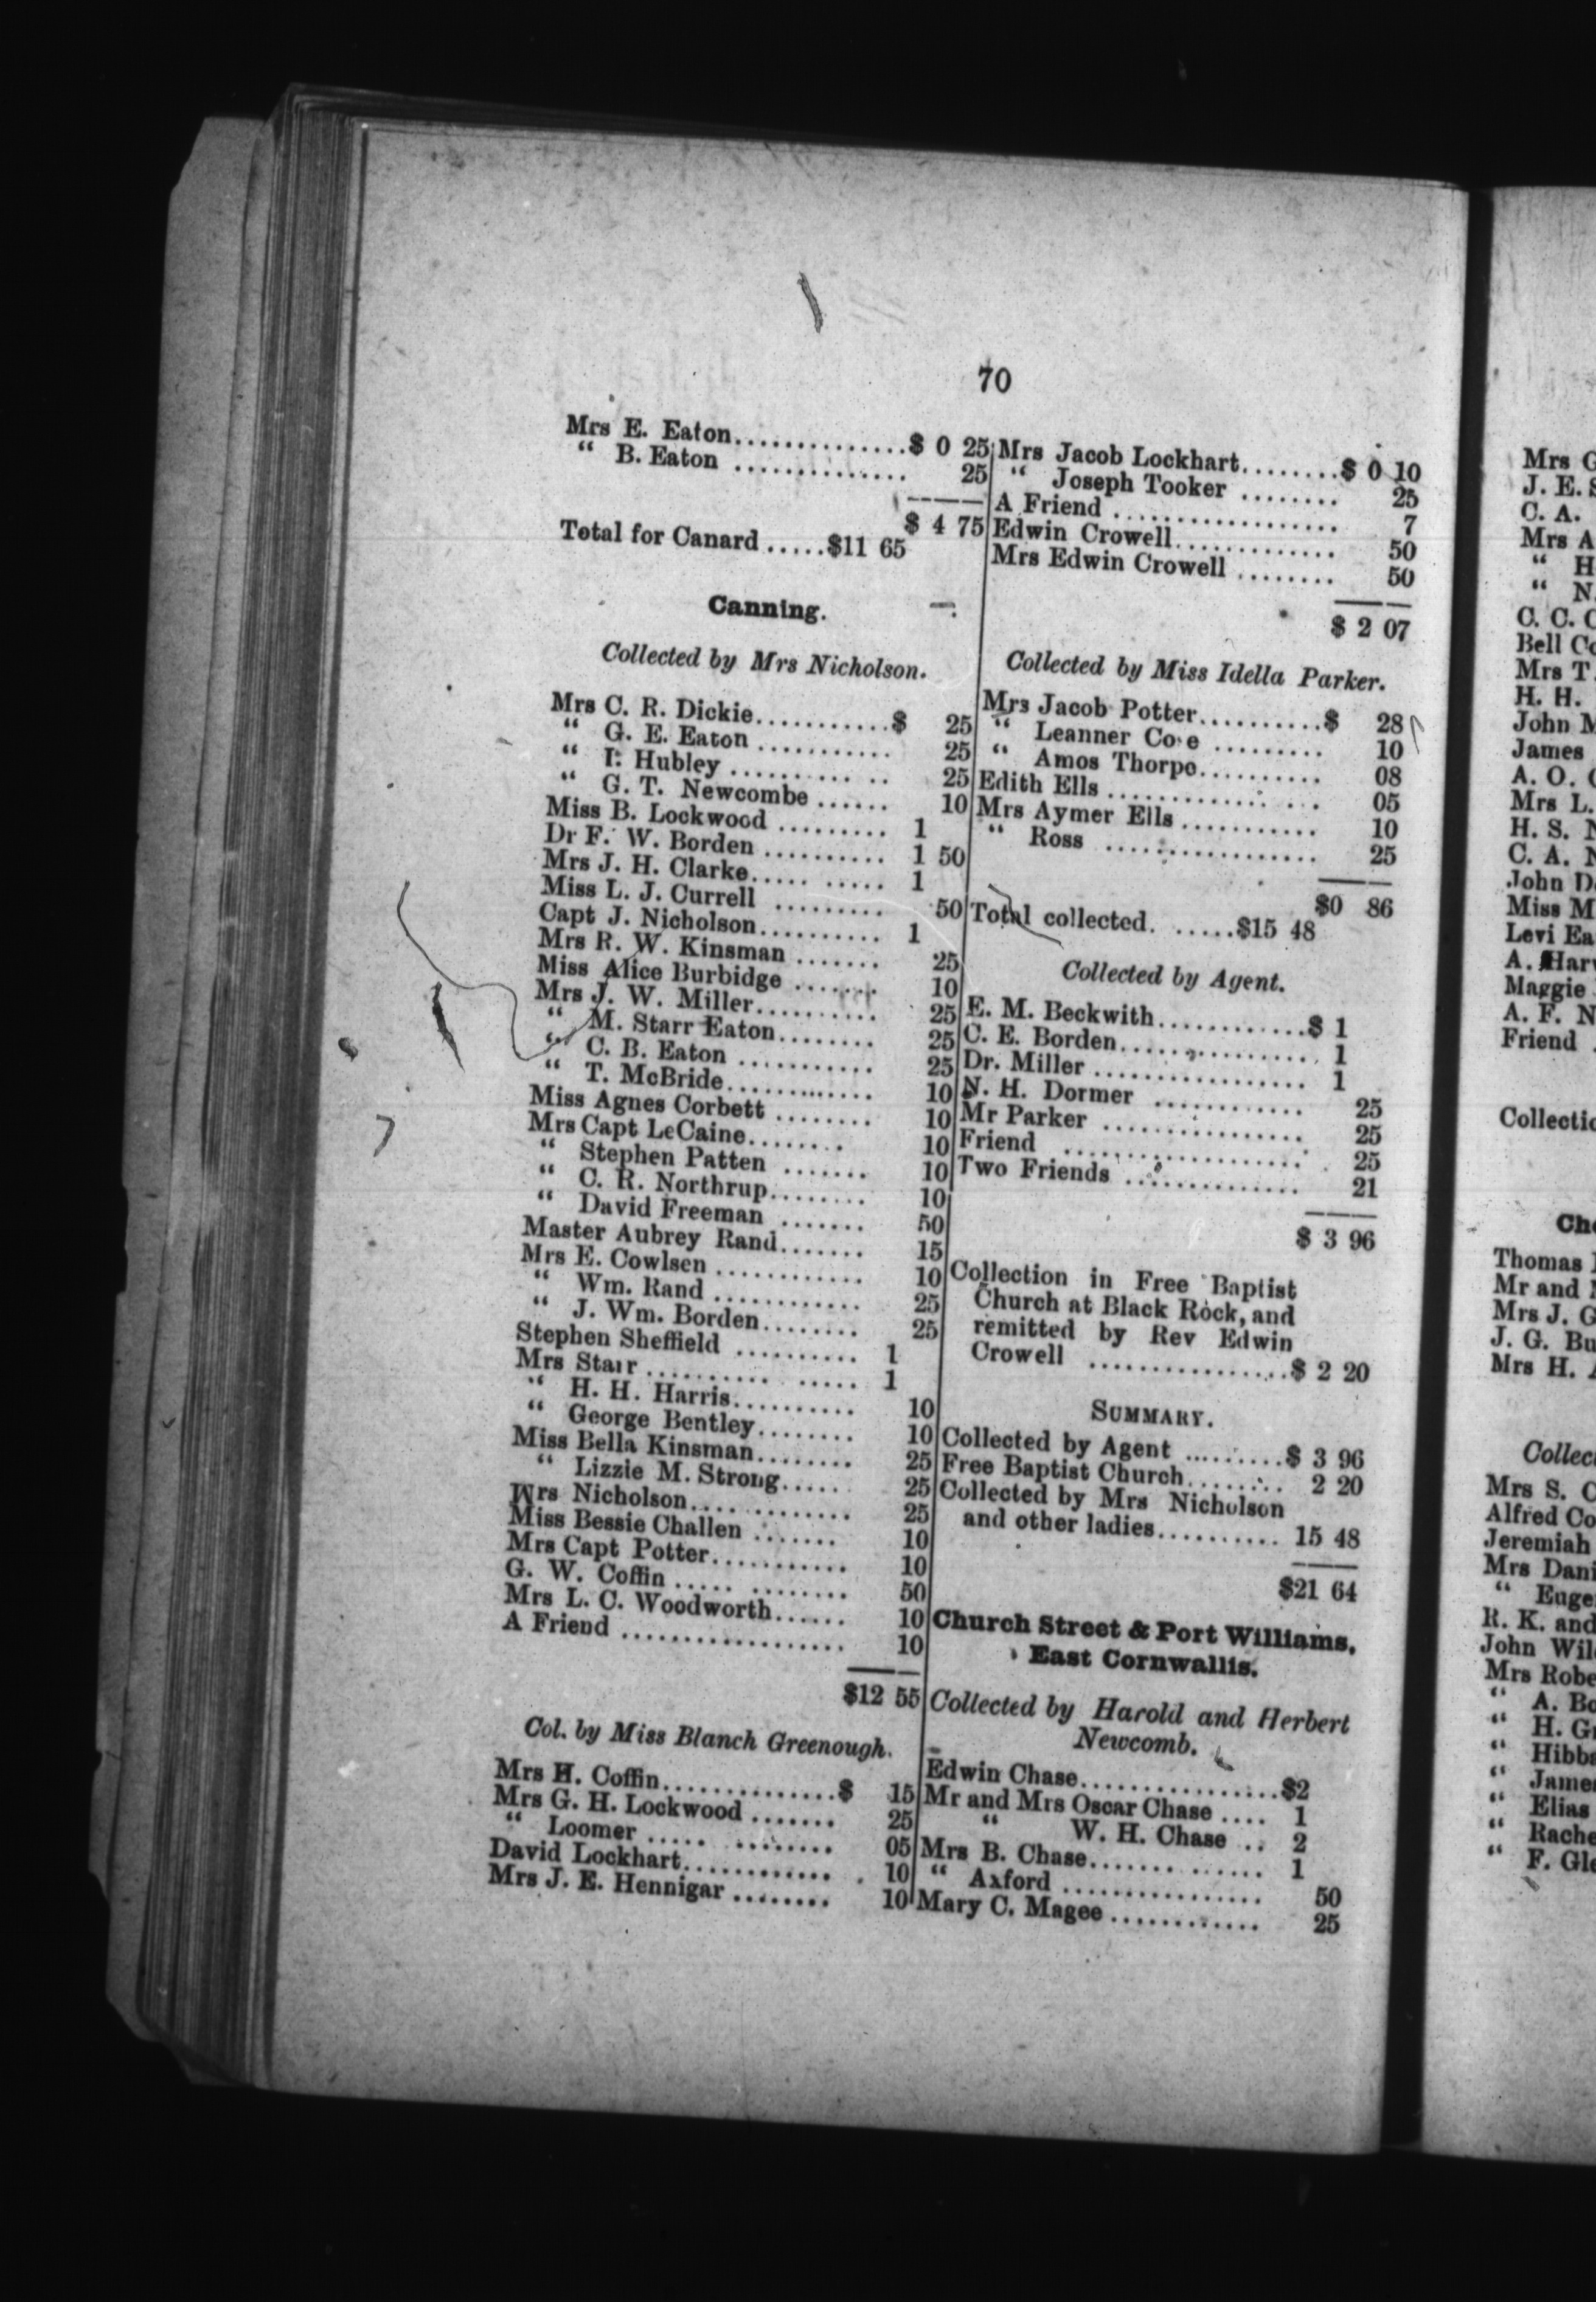 70
Mrs E. Eaton..............$ 0 25
“ B. Eaton .............. 25
$ 4 75
Total for Canard .....$11 65
Canning.
Collected by Mrs Nicholson.
Mrs C. R. Dickie...........$ 25
“ G. E. Eaton ........... 25
“ Hubley ............. 25
“ G. T. Newcombe ...... 10
Miss B. Lockwood ......... 1
Dr F. W. Borden .......... 1 50
Mrs J. H. Clarke.......... 1
Miss L. J. Currell ......... 50
Capt J. Nicholson.......... 1
Mrs R. W. Kinsman ....... 25
Miss Alice Burbidge ....... 10
Mrs J. W. Miller.......... 25
“ M. Starr Eaton........ 25
“ C. B. Eaton ........... 25
“ T. McBride............ 10
Miss Agnes Corbett ........ 10
Mrs Capt LeCaine........ 10
“ Stephen Patten ....... 10
“ C. R. Northrup........ 10
“ David Freeman ....... 50
Master Aubrey Rand....... 15
Mrs E. Cowlsen ............ 10
“ Wm. Rand ............ 25
“ J. Wm. Borden........ 25
Stephen Sheffield .......... 1
Mrs Starr ............... 1
“ H. H. Harris.......... 10
“ George Bentley........ 10
Miss Bella Kinsman........ 25
“ Lizzie M. Strong..... 25
Mrs Nicholson............. 25
Miss Bessie Challen ....... 10
Mrs Capt Potter............ 10
G. W. Coffin ............. 50
Mrs L. C. Woodworth...... 10
A Friend .................. 10
$12 55
Col. by Miss Blanch Greenough.
Mrs H. Coffin..............$ 15
Mrs G. H. Lockwood ....... 25
“ Loomer ............. 05
David Lockhart............ 10
Mrs J. E. Hennigar ........ 10
Mrs Jacob Lockhart........$ 0 10
“ Joseph Tooker ........ 25
A Friend .................. 7
Edwin Crowell............. 50
Mrs Edwin Crowell ........ 50
$ 2 07
Collected by Miss Idella Parker.
Mrs Jacob Potter..........$ 28
“ Leanner ......... 10
“ Amos Thorpe.......... 08
Edith Ells ................ 05
Mrs Aymer Ells ........... 10
“ Ross ................. 25
$0 86
Total collected. ......$15 48
Collected by Agent.
E. M. Beckwith............$ 1
C. E. Borden............... 1
Dr. Miller ................. 1
N. H. Dormer ............ 25
Mr Parker ................ 25
Friend ................... 25
Two Friends .............. 21
$ 3 96
Collection in Free Baptist
Church at Black Rock, and
remitted by Rev Edwin
Crowell ................$ 2 20
SUMMARY.
Collected by Agent .........$ 3 96
Free Baptist Church........ 2 20
Collected by Mrs Nicholson
and other ladies.......... 15 48
$21 64
Church Street & Port Williams,
East Cornwallis.
Collected by Harold and Herbert
Newcomb.
Edwin Chase................$2
Mr and Mrs Oscar Chase .... 1
“ W. H. Chase .. 2
Mrs B. Chase.............. 1
“ Axford ................ 50
Mary C. Magee ............ 25
Mrs
J. E.
C. A.
Mrs A
“ H
“ N.
C. C.
Bell
Mrs T
H. H.
John M
James
A. O.
Mrs L.
H. S.
C. A.
John
Miss M
Levi
A.
Maggie
A. F. N
Friend
Thomas
Mr and
Mrs J. G
J. G. Bu
Mrs H.
Mrs S. C
Alfred Co
Jeremiah
Mrs Dani
“ Euge
R. K. and
John Wil
Mrs Robe
“ A. Bo
“ H. G
“ Hibb
“ James
“ Elias
“ Rache
“ F. Gle